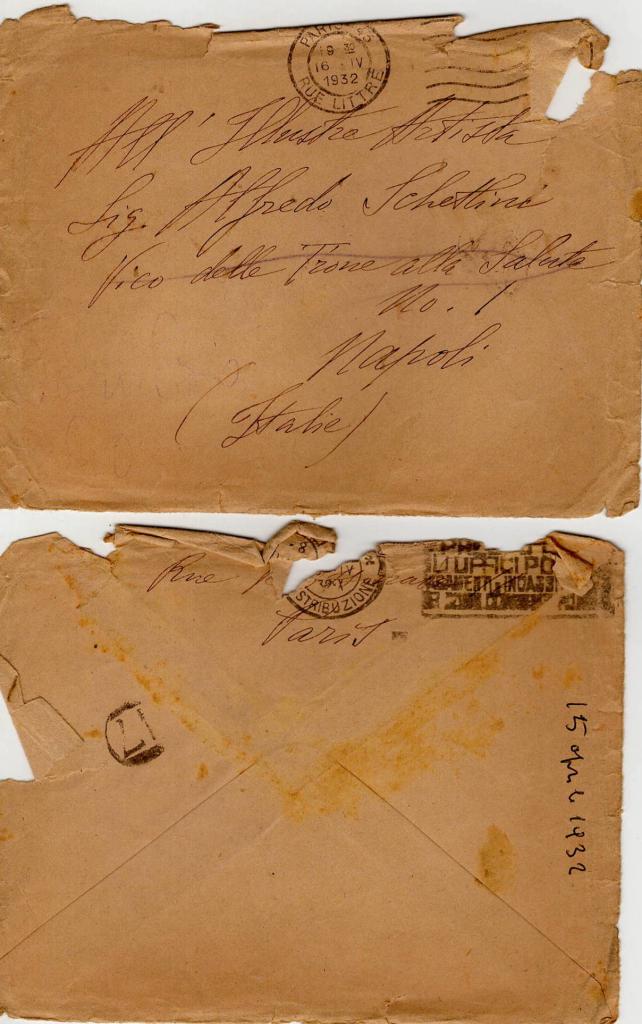 PARIS
19 30
16 IV
1932
RUE LITTRÉ
All' Illustre Artista
Sig. Alfredo Schettini
Vico delle Trone alla Salute
No. 1
Napoli
(Italie)
8
Rue
STRIBUZIONE
UFFICI PO
INCASS
Paris
15 aprile 1932